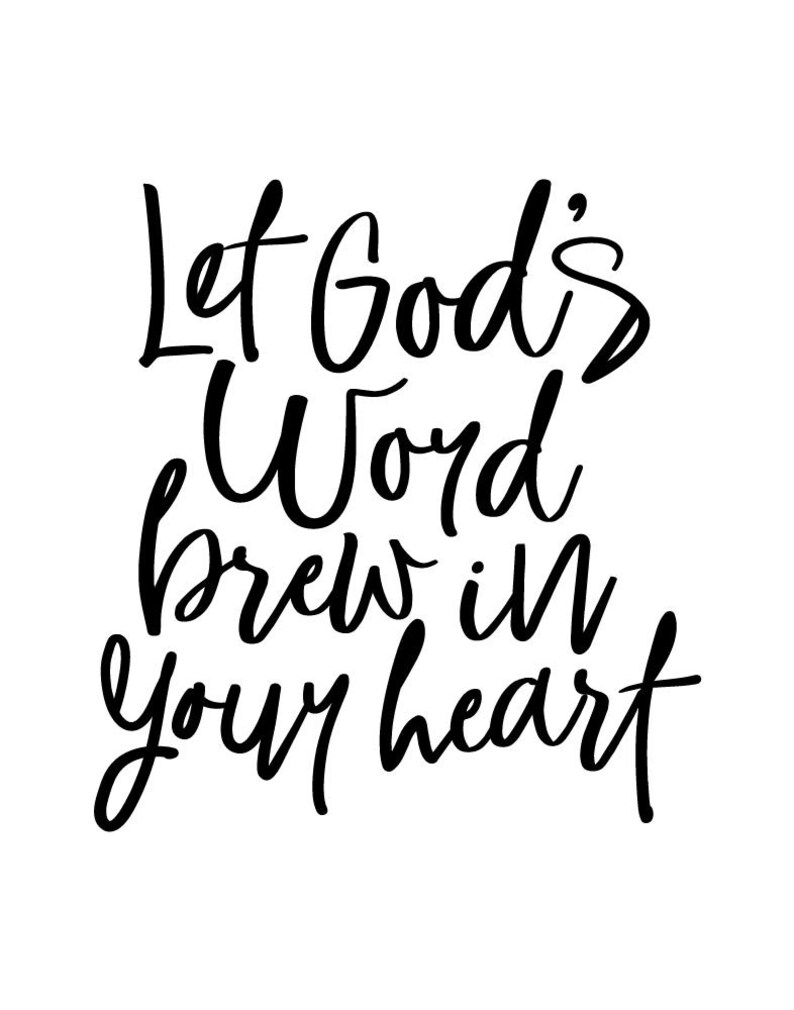 Let God's
Word
brew in
your heart